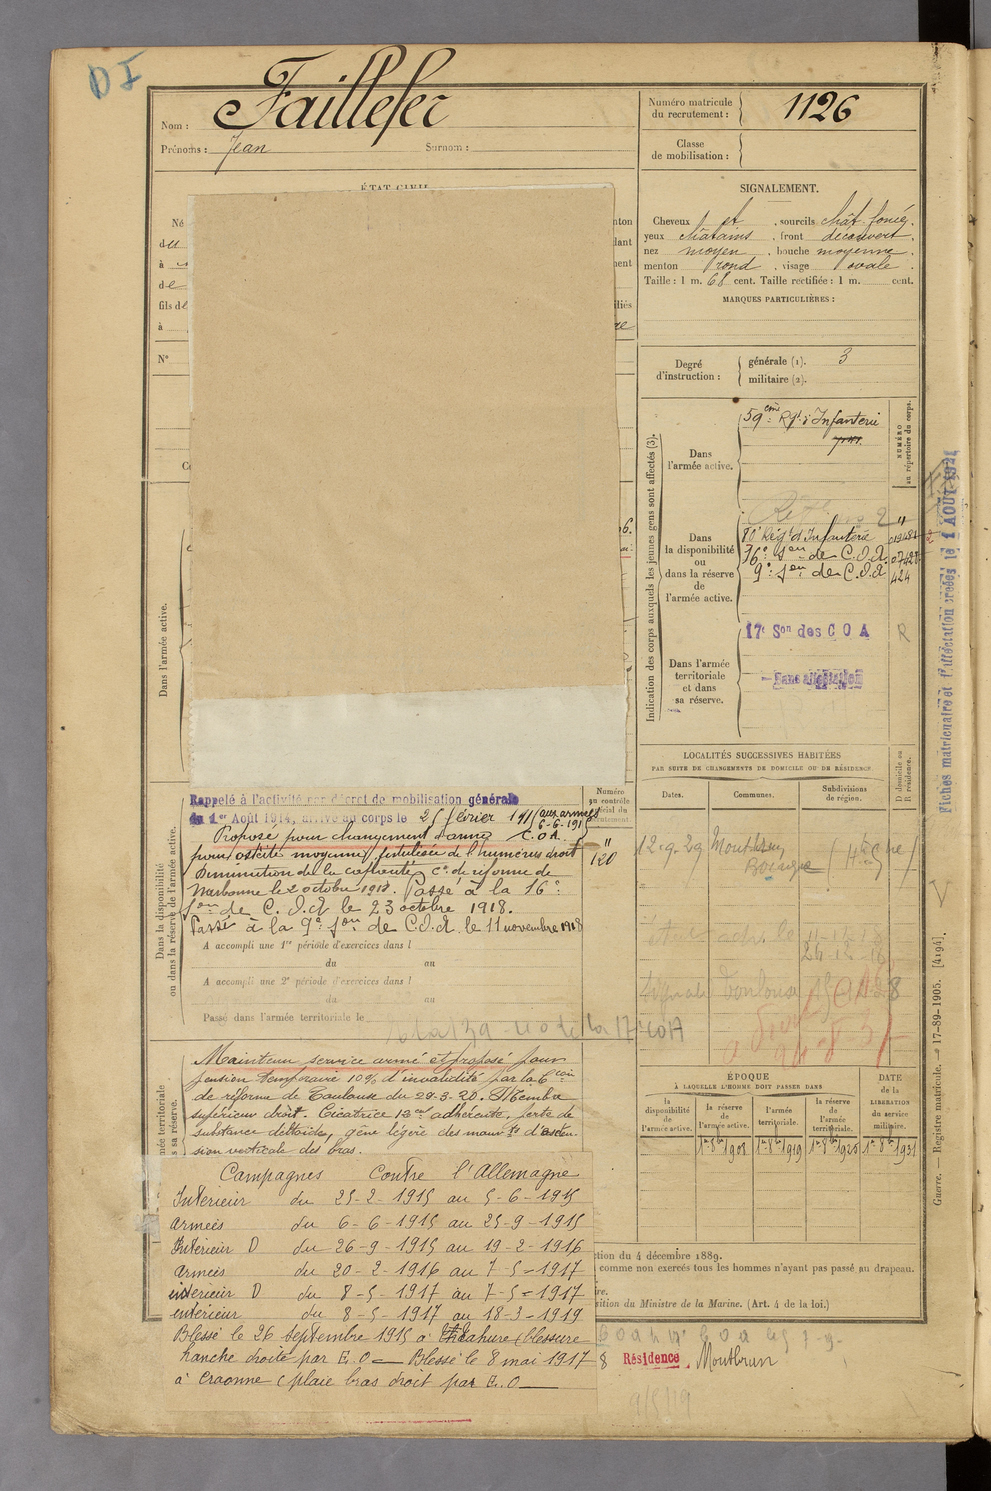 DI
Nom : Faillefer
Prénoms : Jean Surnom :
Numéro matricule
du recrutement : 1126
Classe
de mobilisation :
ÉTAT CIVIL
Né
du
à
de
fils de
à
N°
SIGNALEMENT.
Cheveux et , sourcils chât. foncé.
yeux châtains , front découvert ,
nez moyen , bouche moyenne ,
menton rond , visage ovale .
Taille : 1 m. 68 cent. Taille rectifiée : 1 m. cent.
MARQUES PARTICULIÈRES :
Degré
d'instruction :
générale (1). 3
militaire (2).
Indication des corps auxquels les jeunes gens sont affectés (3).
NUMÉRO
au répertoire du corps.
Dans
l'armée active.
59ème Rgt d'Infanterie
Dans
la disponibilité
ou
dans la réserve
de
l'armée active.
80e Régt d'Infanterie
16e Son de C.O.A.
9e Son de C.O.A 424
Dans l'armée
territoriale
et dans
sa réserve.
17e Son des C O A R
Sans affectation
Fiches matriculaire et d'affectation créées le 1 AOUT 1921
Dans l'armée active.
LOCALITÉS SUCCESSIVES HABITÉES
PAR SUITE DE CHANGEMENTS DE DOMICILE OU DE RÉSIDENCE.
Dates. Communes. Subdivisions
de région.
D domicile ou
R résidence.
12.9.29 Montbrun
Bocage
Toulouse
Dans la disponibilité
ou dans la réserve de l'armée active.
Rappelé à l'activité par décret de mobilisation générale
du 1er Août 1914, arrivé au corps le 25 février 1915 (aux armées
6-6-191
Proposé pour changement d'arme C.O.A.
pour ostéite moyenne fistulisée de l'humérus droit
Diminution de la
Con de réforme de
Narbonne le 2 octobre 1918. Passé à la 16e
Son de C.O.A le 23 octobre 1918.
Passé à la 9e Son de C.O.A. le 11 novembre 1918
A accompli une 1re période d'exercices dans l
du au
A accompli une 2e période d'exercices dans l
du au
Passé dans l'armée territoriale le
Numéro
au contrôle
120
Maintenu service armé et proposé pour
pension temporaire 10% d'invalidité par la Con
de réforme de Toulouse du 29-3-20. Membre
supérieur droit. Cicatrice 12cm adhérente, perte de
substance deltoïde, gêne légère des mouvts d'exten-
sion verticale des bras.
ÉPOQUE
À LAQUELLE L'HOMME DOIT PASSER DANS
la
disponibilité
de
l'armée active.
la réserve
de
l'armée active.
l'armée
territoriale.
la réserve
de
l'armée
territoriale.
DATE
de la
LIBÉRATION
du service
militaire.
1er 8bre 1908 1er 8bre 1919 1er 8bre 1925 1er 8bre 1931
Guerre. — Registre matricule. — 17-89-1905. [4194].
Campagnes Contre l'Allemagne
Intérieur du 25-2-1915 au 5-6-1915
Armées du 6-6-1915 au 25-9-1915
Intérieur D du 26-9-1915 au 19-2-1916
Armées du 20-2-1916 au 7-5-1917
intérieur D du 8-5-1917 au 7-5-1917
intérieur du 8-5-1917 au 18-3-1919
Blessé le 26 septembre 1915 à Thahure (blessure
hanche droite par E.O — Blessé le 8 mai 1917
à Craonne (plaie bras droit par E.O —
ction du 4 décembre 1889.
comme non exercés tous les hommes n'ayant pas passé au drapeau.
sition du Ministre de la Marine. (Art. 4 de la loi.)
Résidence Montbrun
9/5/19